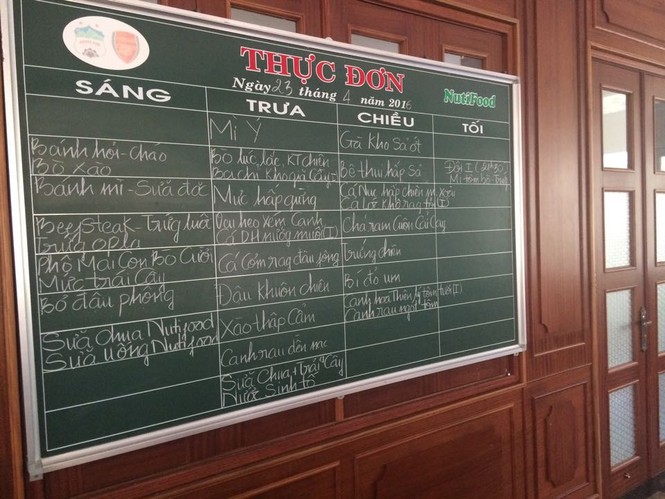 THỰC ĐƠN
Ngày 23 tháng 4 năm 2016
NutiFood
SÁNG
TRƯA
CHIỀU
TỐI
Bánh hỏi - Cháo
Bò Xào
Bánh mì - Sữa đá
Beefsteak - Trứng luộc
Trứng opla
Phô Mai Con Bò Cười
Mứt trái Cây
Bơ đậu phộng
Sữa Chua Nutifood
Sữa Uống Nutifood
Mì Ý
Bò lúc lắc, KT chiên
Mực hấp gừng
Cá Cơm rag đậu fộng
Đậu Khuôn chiên
Xào thập Cẩm
Canh rau dền
Sữa Chua + Trái Cây
Nước Sinh tố
Gà Kho Sả ớt
Bê thui hấp Sả
Cá Nục hấp chiên
Chả ram Cuốn Cải Cay
Trứng chiên
Bí đỏ um
Canh hoa Thiên lý tôm tươi (I)
Canh rau ngót tôm
Đội I (21h30)
Mì tôm bò - Trứng